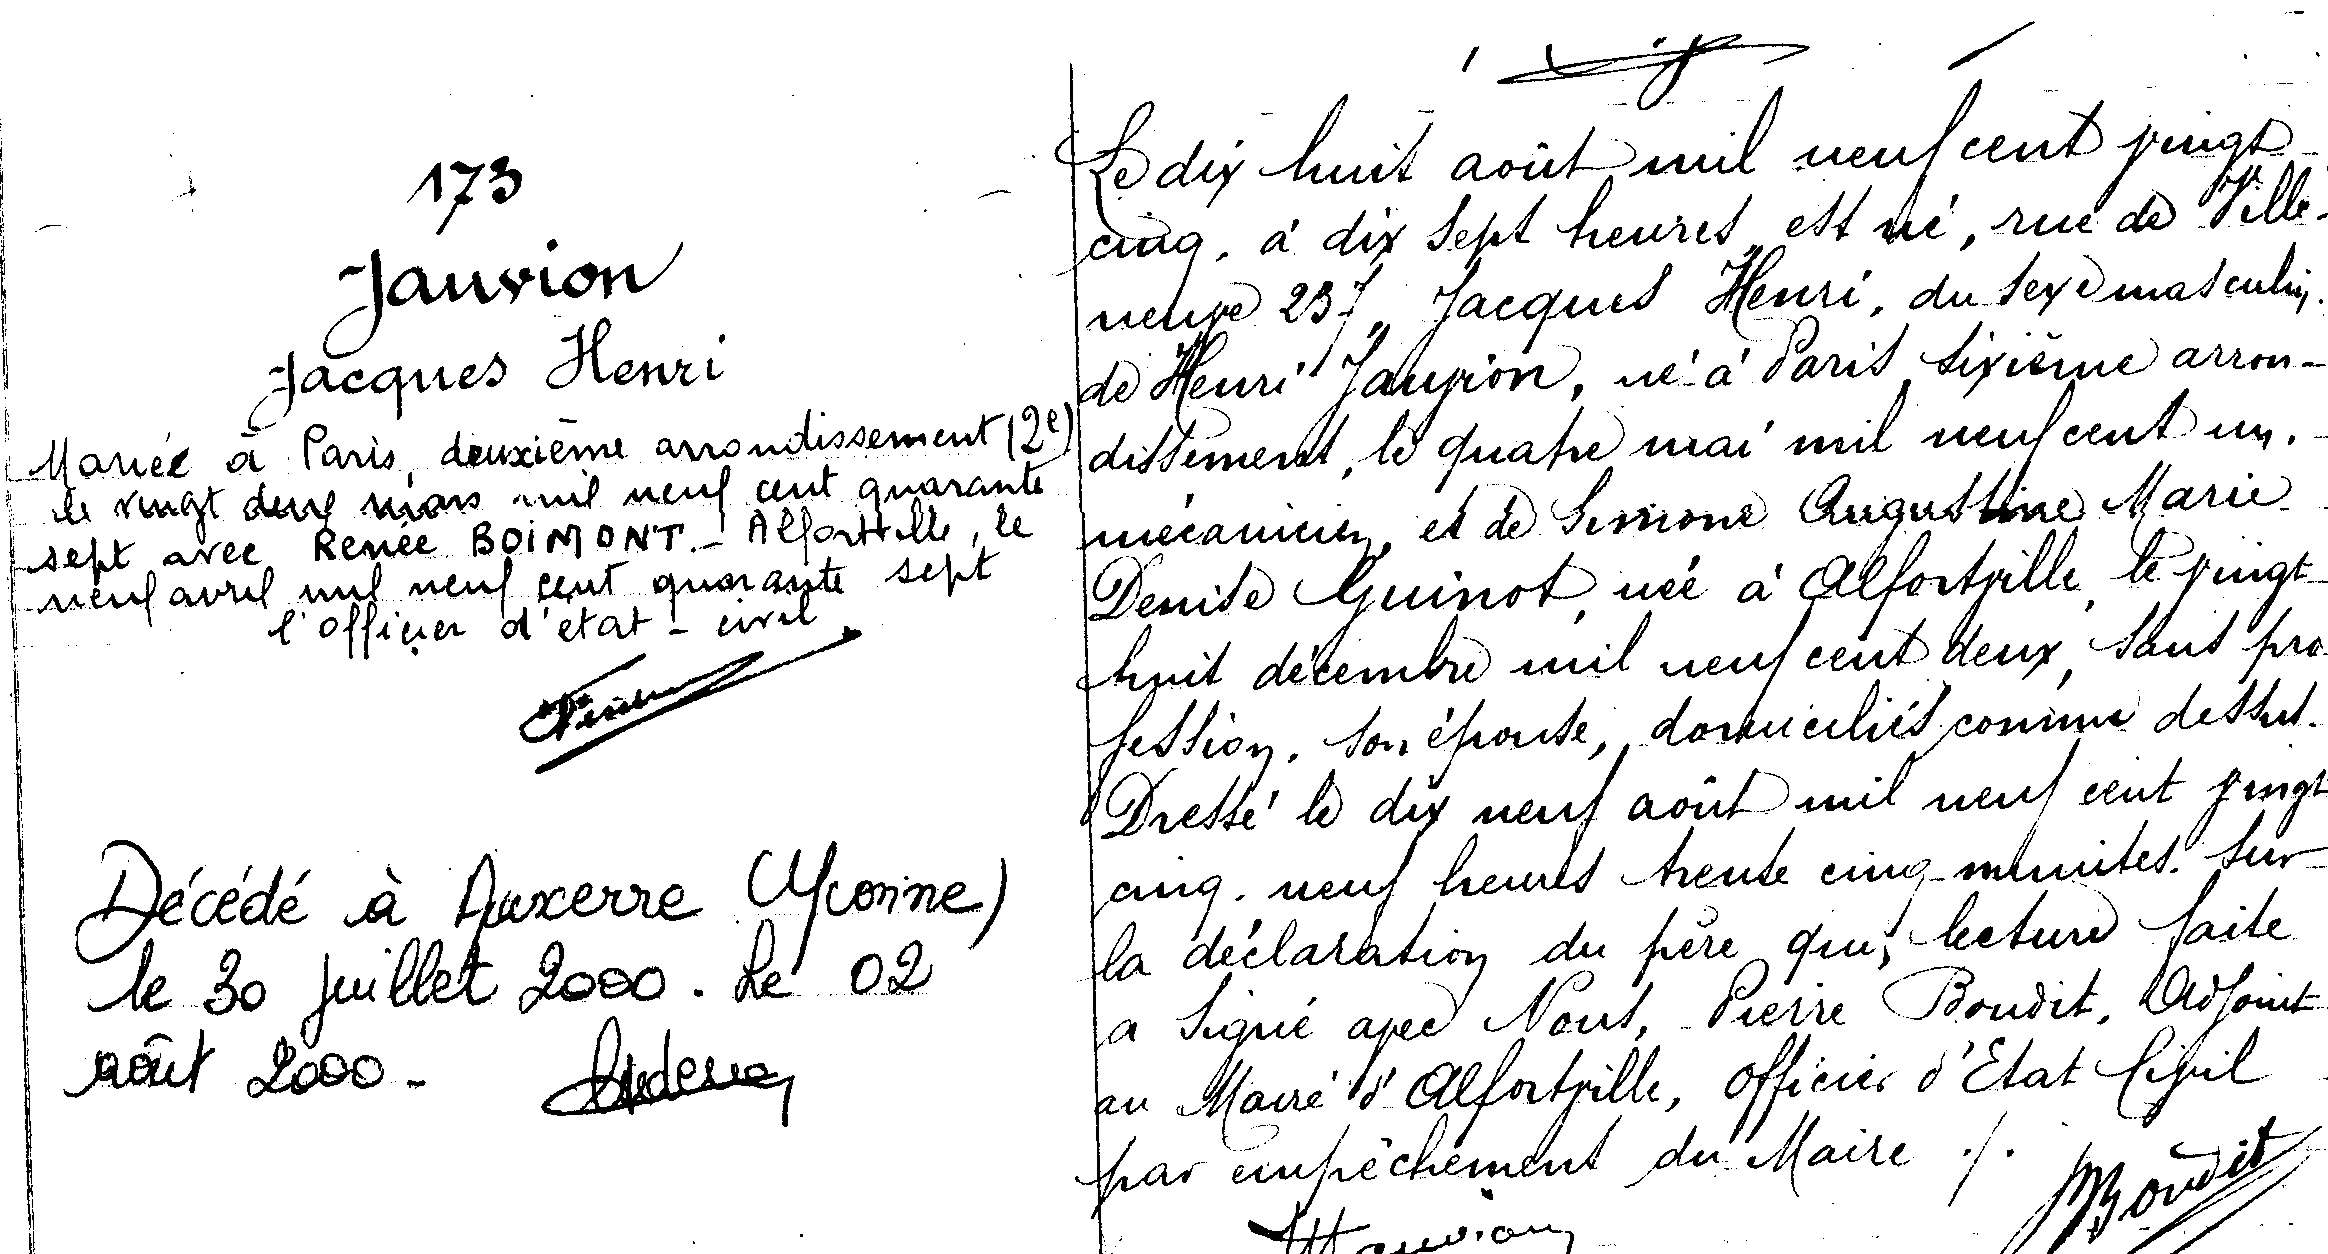 173
Jauvion
Jacques Henri
Mariée à Paris, deuxième arrondissement (2e)
le vingt deux mars mil neuf cent quarante
sept avec Renée BOIMONT._ Alfortville, le
neuf avril mil neuf cent quarante sept
l'officier d'état-civil
Décédé à Auxerre (Yonne)
le 30 juillet 2000. Le 02
août 2000-
Le dix huit août mil neuf cent vingt
cinq, à dix sept heures, est né, rue de Ville-
neuve 237, Jacques Henri, du sexe masculin,
de Henri Jauvion, né à Paris, sixième arron-
dissement, le quatre mai mil neuf cent un,
mécanicien, et de Simone Augustine Marie
Denise Guinot, née à Alfortville, le vingt
huit décembre mil neuf cent deux, sans pro
fession, son épouse, domiciliés comme dessus.
Dressé le dix neuf août mil neuf cent vingt
cinq, neuf heures trente cinq minutes. Sur
la déclaration du père qui, lecture faite
a signé avec Nous, Pierre Boudit, Adjoint
au Maire d'Alfortville, Officier d'Etat Civil
par empêchement du Maire ./.
Boudit
Jauvion